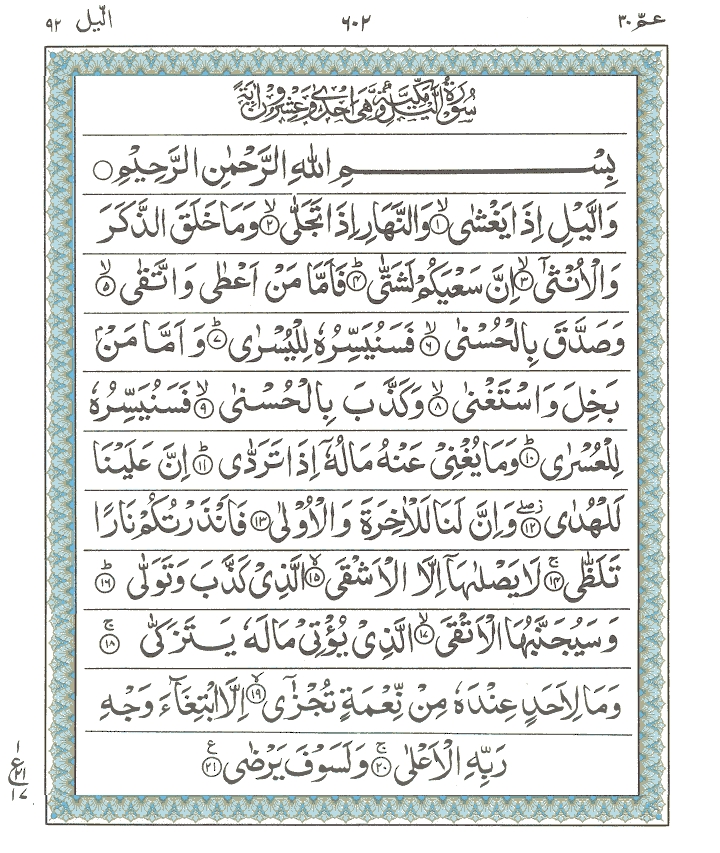 الّيل ٩٢
٦٠٢
عمّ ٣٠
سُوْرَةُ الَّيْلِ مَكِّيَّةٌ وَّهِيَ اِحْدٰى وَّعِشْرُوْنَ اٰيَةً
بِسْمِ اللهِ الرَّحْمٰنِ الرَّحِيْمِ ○
وَالَّيْلِ اِذَا يَغْشٰى ۙ﴿۱﴾ وَالنَّهَارِ اِذَا تَجَلّٰى ۙ﴿۲﴾ وَمَا خَلَقَ الذَّكَرَ
وَالْاُنْثٰٓى ۙ﴿۳﴾ اِنَّ سَعْيَكُمْ لَشَتّٰى ؕ﴿۴﴾ فَاَمَّا مَنْ اَعْطٰى وَاتَّقٰى ۙ﴿۵﴾
وَصَدَّقَ بِالْحُسْنٰى ۙ﴿۶﴾ فَسَنُيَسِّرُهٗ لِلْيُسْرٰى ؕ﴿۷﴾ وَاَمَّا مَنْۢ
بَخِلَ وَاسْتَغْنٰى ۙ﴿۸﴾ وَكَذَّبَ بِالْحُسْنٰى ۙ﴿۹﴾ فَسَنُيَسِّرُهٗ
لِلْعُسْرٰى ؕ﴿۱۰﴾ وَمَا يُغْنِيْ عَنْهُ مَالُهٗٓ اِذَا تَرَدّٰى ؕ﴿۱۱﴾ اِنَّ عَلَيْنَا
لَلْهُدٰى ۖ﴿۱۲﴾ وَاِنَّ لَنَا لَلْاٰخِرَةَ وَالْاُوْلٰى ﴿۱۳﴾ فَاَنْذَرْتُكُمْ نَارًا
تَلَظّٰى ۚ﴿۱۴﴾ لَا يَصْلٰىهَاۤ اِلَّا الْاَشْقَى ۙ﴿۱۵﴾ الَّذِيْ كَذَّبَ وَتَوَلّٰى ؕ﴿۱۶﴾
وَسَيُجَنَّبُهَا الْاَتْقَى ۙ﴿۱۷﴾ الَّذِيْ يُؤْتِيْ مَالَهٗ يَتَزَكّٰى ۚ﴿۱۸﴾
وَمَا لِاَحَدٍ عِنْدَهٗ مِنْ نِّعْمَةٍ تُجْزٰٓى ۙ﴿۱۹﴾ اِلَّا ابْتِغَآءَ وَجْهِ
رَبِّهِ الْاَعْلٰى ۚ﴿۲۰﴾ وَلَسَوْفَ يَرْضٰى ﴿۲۱﴾ ع
١
ع ٢١
١٧